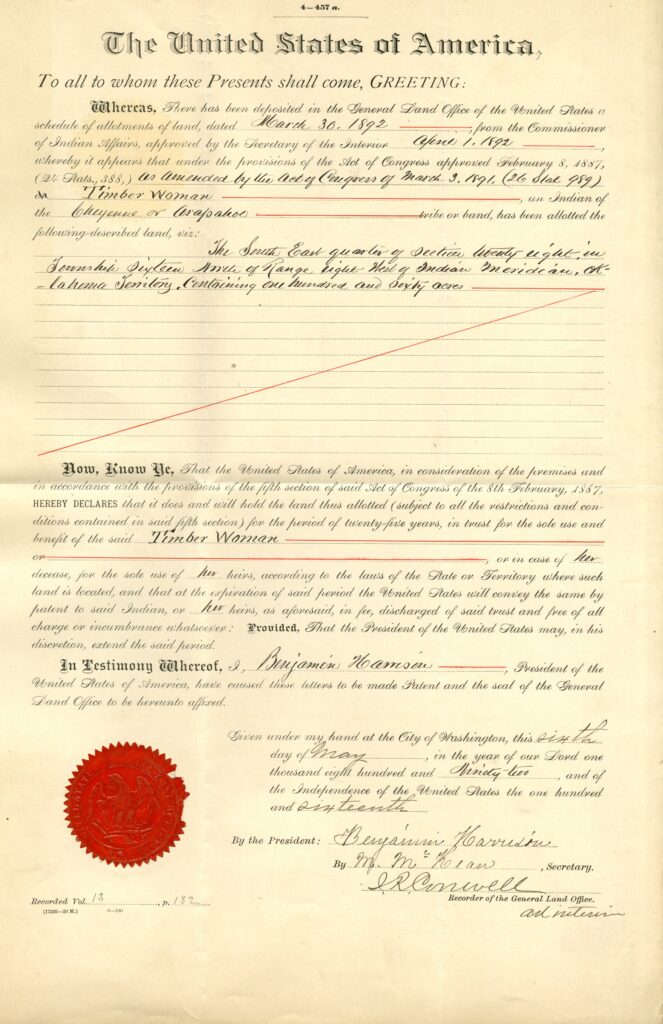 4—457 a.
The United States of America,
To all to whom these Presents shall come, GREETING:
Whereas, There has been deposited in the General Land Office of the United States a
schedule of allotments of land, dated March 30, 1892, from the Commissioner
of Indian Affairs, approved by the Secretary of the Interior April 1, 1892,
whereby it appears that under the provisions of the Act of Congress approved February 8, 1887,
(24 Stats., 388,) as amended by the Act of Congress of March 3, 1891, (26 Stat 989)
Timber Woman, an Indian of
the Cheyenne or Arapahoe tribe or band, has been allotted the
following-described land, viz:
The South East quarter of Section twenty eight, in
Township Sixteen North of Range eight West of Indian Meridian, Ok-
-lahoma Territory, Containing one hundred and sixty acres
Now, Know Ye, That the United States of America, in consideration of the premises and
in accordance with the provisions of the fifth section of said Act of Congress of the 8th February, 1887,
HEREBY DECLARES that it does and will hold the land thus allotted (subject to all the restrictions and con-
ditions contained in said fifth section) for the period of twenty-five years, in trust for the sole use and
benefit of the said Timber Woman
or, or in case of her
decease, for the sole use of her heirs, according to the laws of the State or Territory where such
land is located, and that at the expiration of said period the United States will convey the same by
patent to said Indian, or her heirs, as aforesaid, in fee, discharged of said trust and free of all
charge or incumbrance whatsoever: Provided, That the President of the United States may, in his
discretion, extend the said period.
In Testimony Whereof, I, Benjamin Harrison, President of the
United States of America, have caused these letters to be made Patent and the seal of the General
Land Office to be hereunto affixed.
Given under my hand at the City of Washington, this sixth
day of May, in the year of our Lord one
thousand eight hundred and Ninety two, and of
the Independence of the United States the one hundred
and sixteenth
By the President: Benjamin Harrison
By M. McKean, Secretary.
I. R. Conwell
Recorder of the General Land Office.
ad interim
Recorded Vol. 13, p. 182